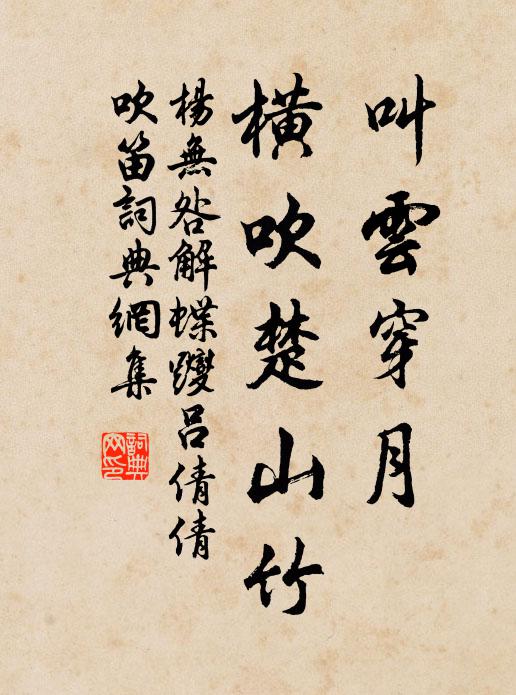 叫雲穿月
橫吹楚山竹
楊無咎解蝶躞呂倩倩
吹笛詞典網集
詞典網印